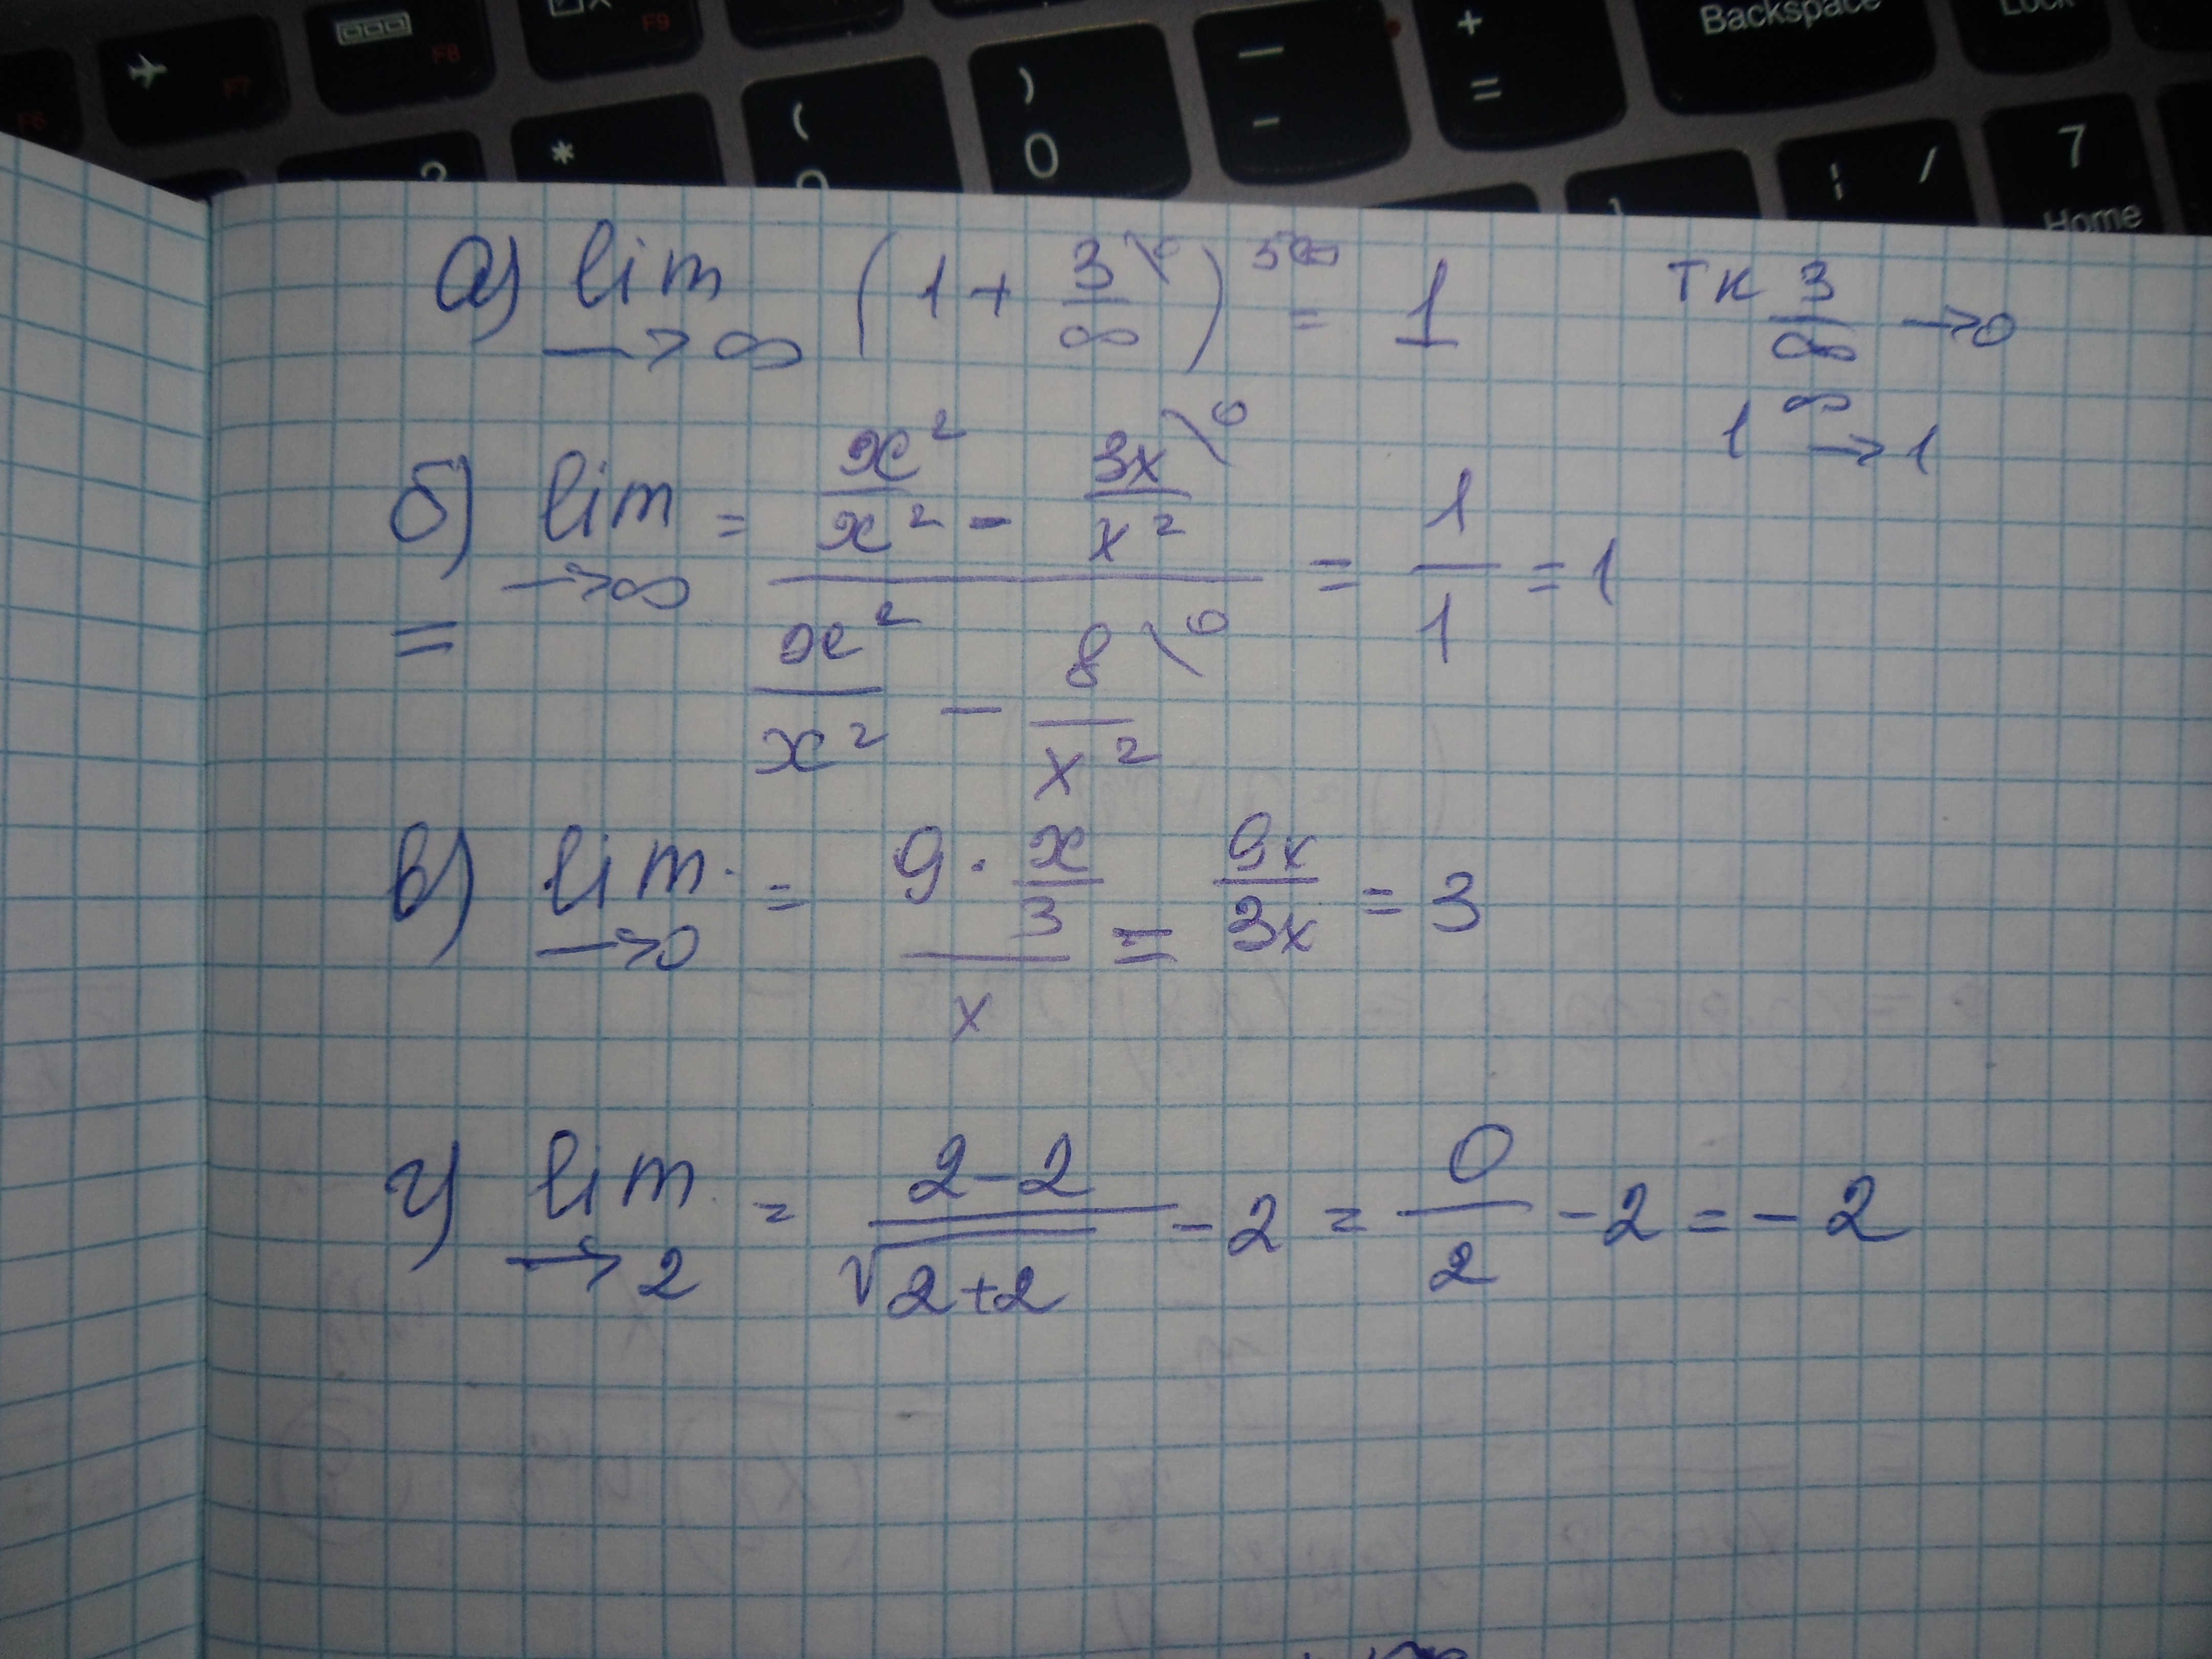 F6 F7 F8 F9 + Backspace Lock
* ( ) 0 — - = 7 Home
а) lim →∞ (1 + 3/∞)^5∞ = 1 тк 3/∞ →0
1^∞ →1
б) lim →∞ = (x²/x² - 3x/x²) / (x²/x² - 8/x²) = 1/1 = 1
=
в) lim →0 = (9 · x/3) / x = 9x/3x = 3
г) lim →2 = (2-2)/√(2+2) - 2 = 0/2 - 2 = -2